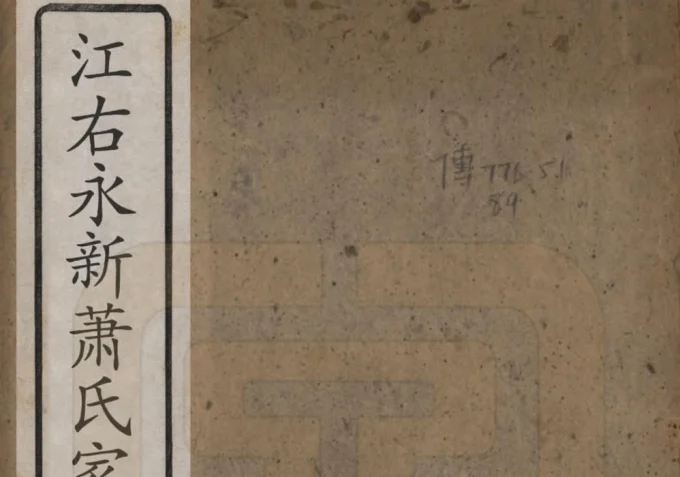 江右永新蕭氏家
傳 776.51
89